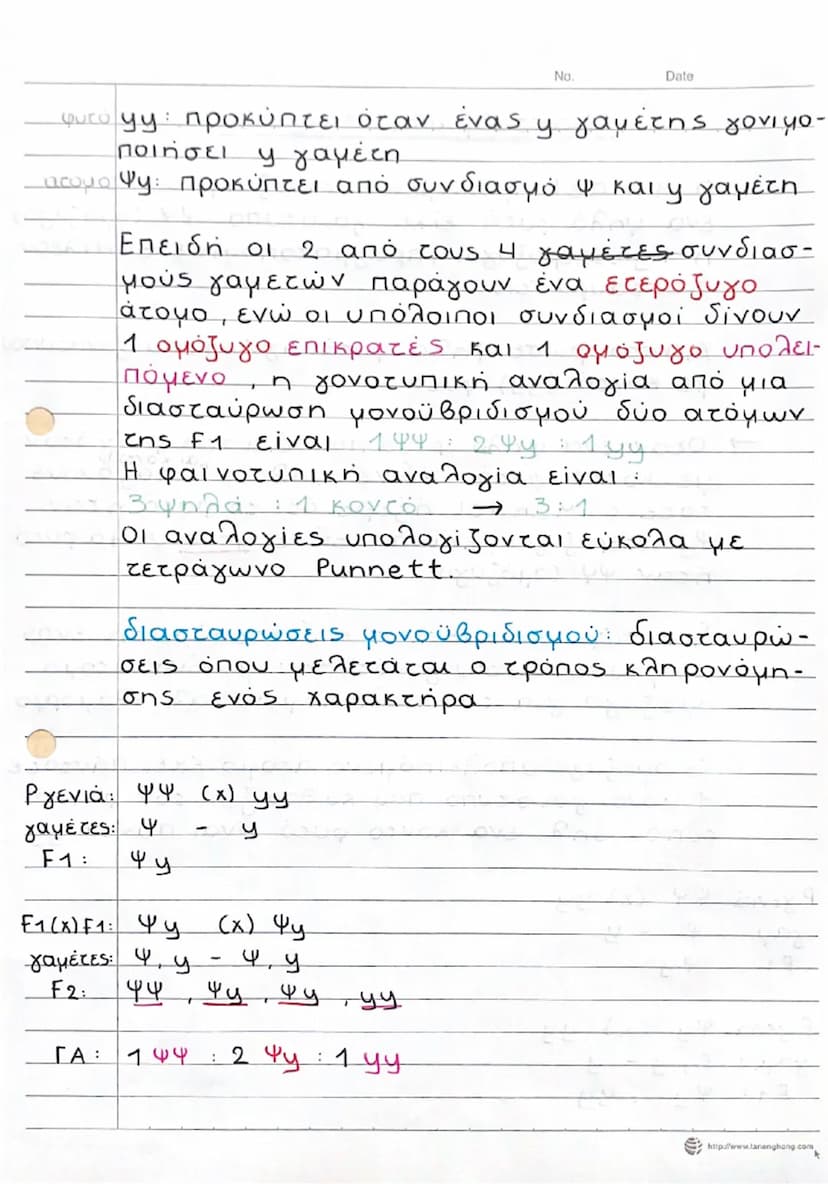 No. Date
yy: προκύπτει όταν ένας y γαμέτης γονιμο-
ποιήσει y γαμέτη
Ψy: προκύπτει από συνδιασμό Ψ και y γαμέτη
Επειδή οι 2 από τους 4 γαμέτες συνδιασ-
μούς γαμετών παράγουν ένα ετερόζυγο
άτομο, ενώ οι υπόλοιποι συνδιασμοί δίνουν
1 ομόζυγο επικρατές και 1 ομόζυγο υπολει-
πόμενο, η γονοτυπική αναλογία από μια
διασταύρωση μονοϋβριδισμού δύο ατόμων
της F1 είναι 1ΨΨ : 2Ψy : 1yy
Η φαινοτυπική αναλογία είναι:
3 ψηλά : 1 κοντό → 3:1
Οι αναλογίες υπολογίζονται εύκολα με
τετράγωνο Punnett.
διασταυρώσεις μονοϋβριδισμού: διασταυρώ-
σεις όπου μελετάται ο τρόπος κληρονόμη-
σης ενός χαρακτήρα
P γενιά: ΨΨ (x) yy
γαμέτες: Ψ - y
F1: Ψy
F1(x)F1: Ψy (x) Ψy
γαμέτες: Ψ, y - Ψ, y
F2: ΨΨ, Ψy, Ψy, yy
ΓΑ: 1 ΨΨ : 2 Ψy : 1 yy
http://www.tanenghong.com